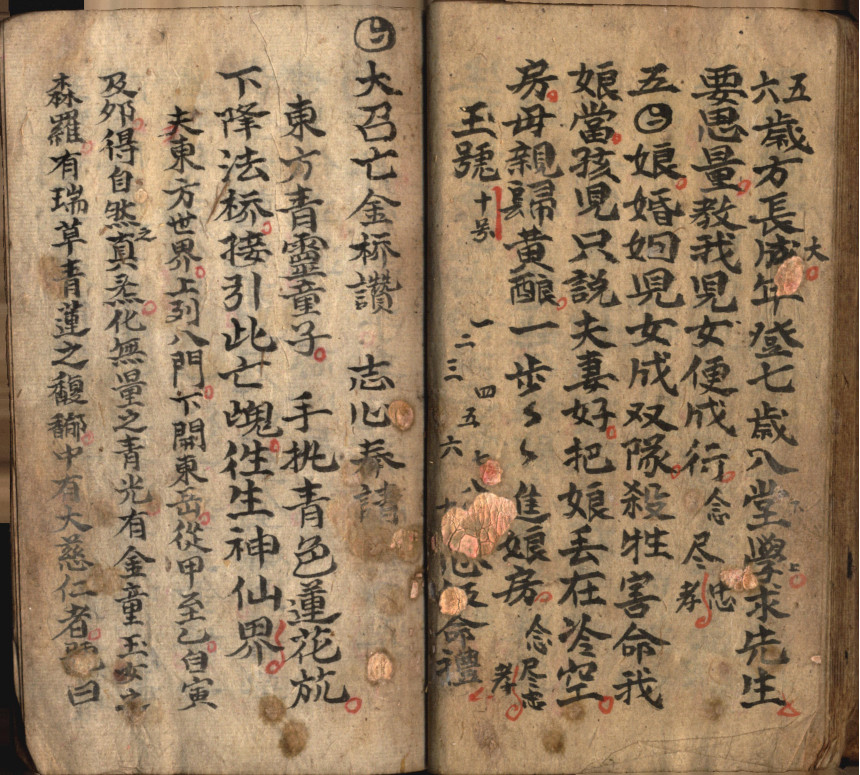 五六歲方長成大年登七歲入堂學求先生
要思量教我兒女便成行念尽忠孝
五娘婚姻兒女成双隊殺牲害命我
娘當孩兒只説夫妻好把娘丢在冷空
房母親歸黄一步々々進娘房念尽忠孝
玉號十号一二三四五六七八命禮
大召亡金桥讚志心奉請
東方青靈童子手執青色蓮花
下降法桥接引此亡魂往生神仙界
夫東方世界上列八門下開東岳從甲至乙自寅
及夘得自然之真炁化無量之青光有金童玉女
森羅有瑞草青蓮之馥郁中有大慈仁者號曰